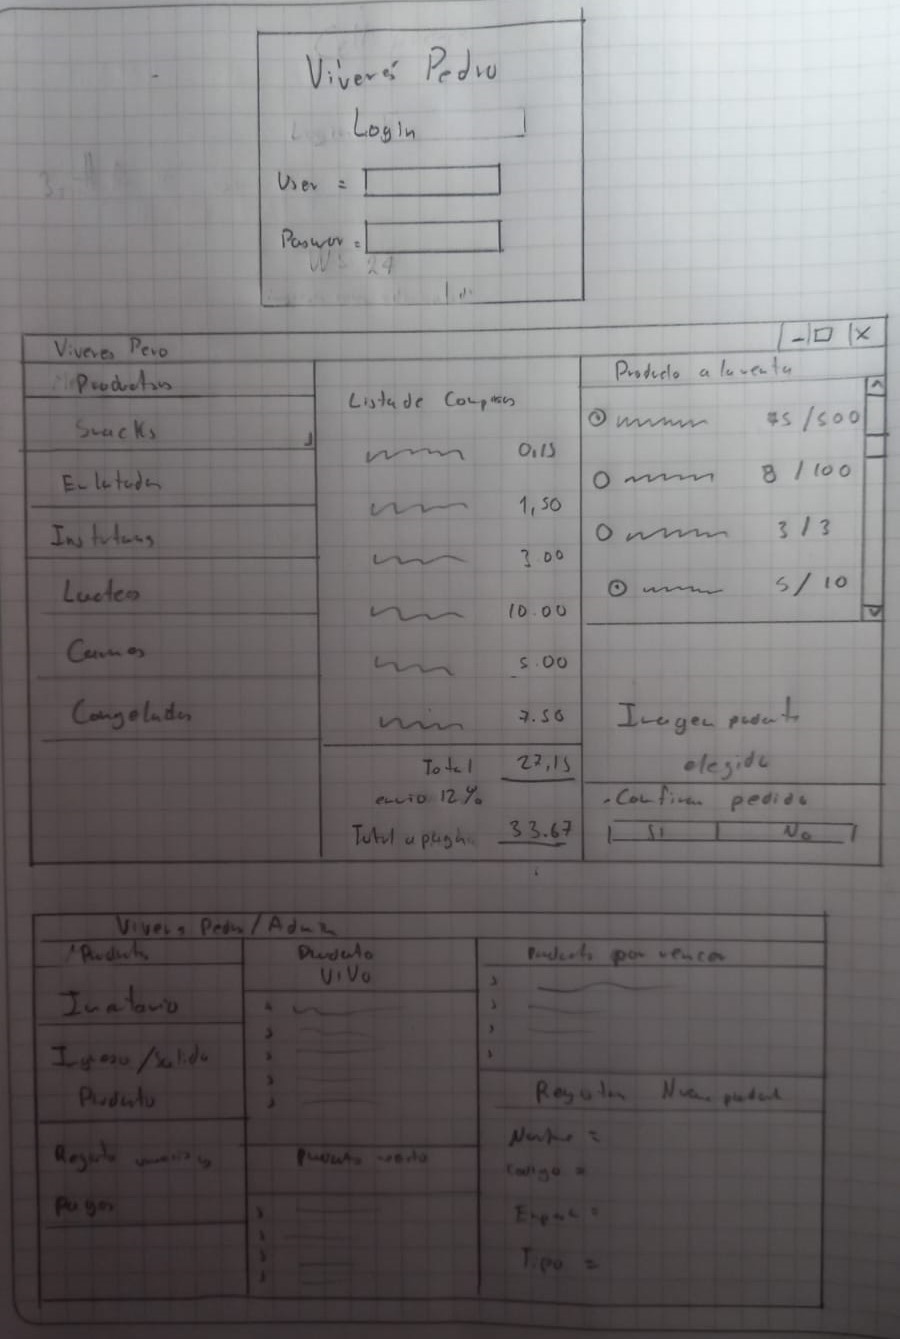 Viveres Pedro
Login
User =
Paswor =
Viveres Pero
Productos
Snacks
Enlatados
Lacteos
Carnes
Congelados
Lista de Compras
0,15
1,50
3.00
10.00
5.00
7.50
Total 27,15
envio 12%
Total a pagar 33.67
Producto a la venta
75/500
8/100
3/3
5/10
Imagen producto
elegido
Confirmar pedido
SI No
Viveres Pedro/Admin
Producto
Ingreso/Salida
Producto
Registro usuarios
Pagos
Producto
VIVO
Producto muerto
Producto por vencer
Registrar Nuevo producto
Nombre =
codigo =
Tipo =